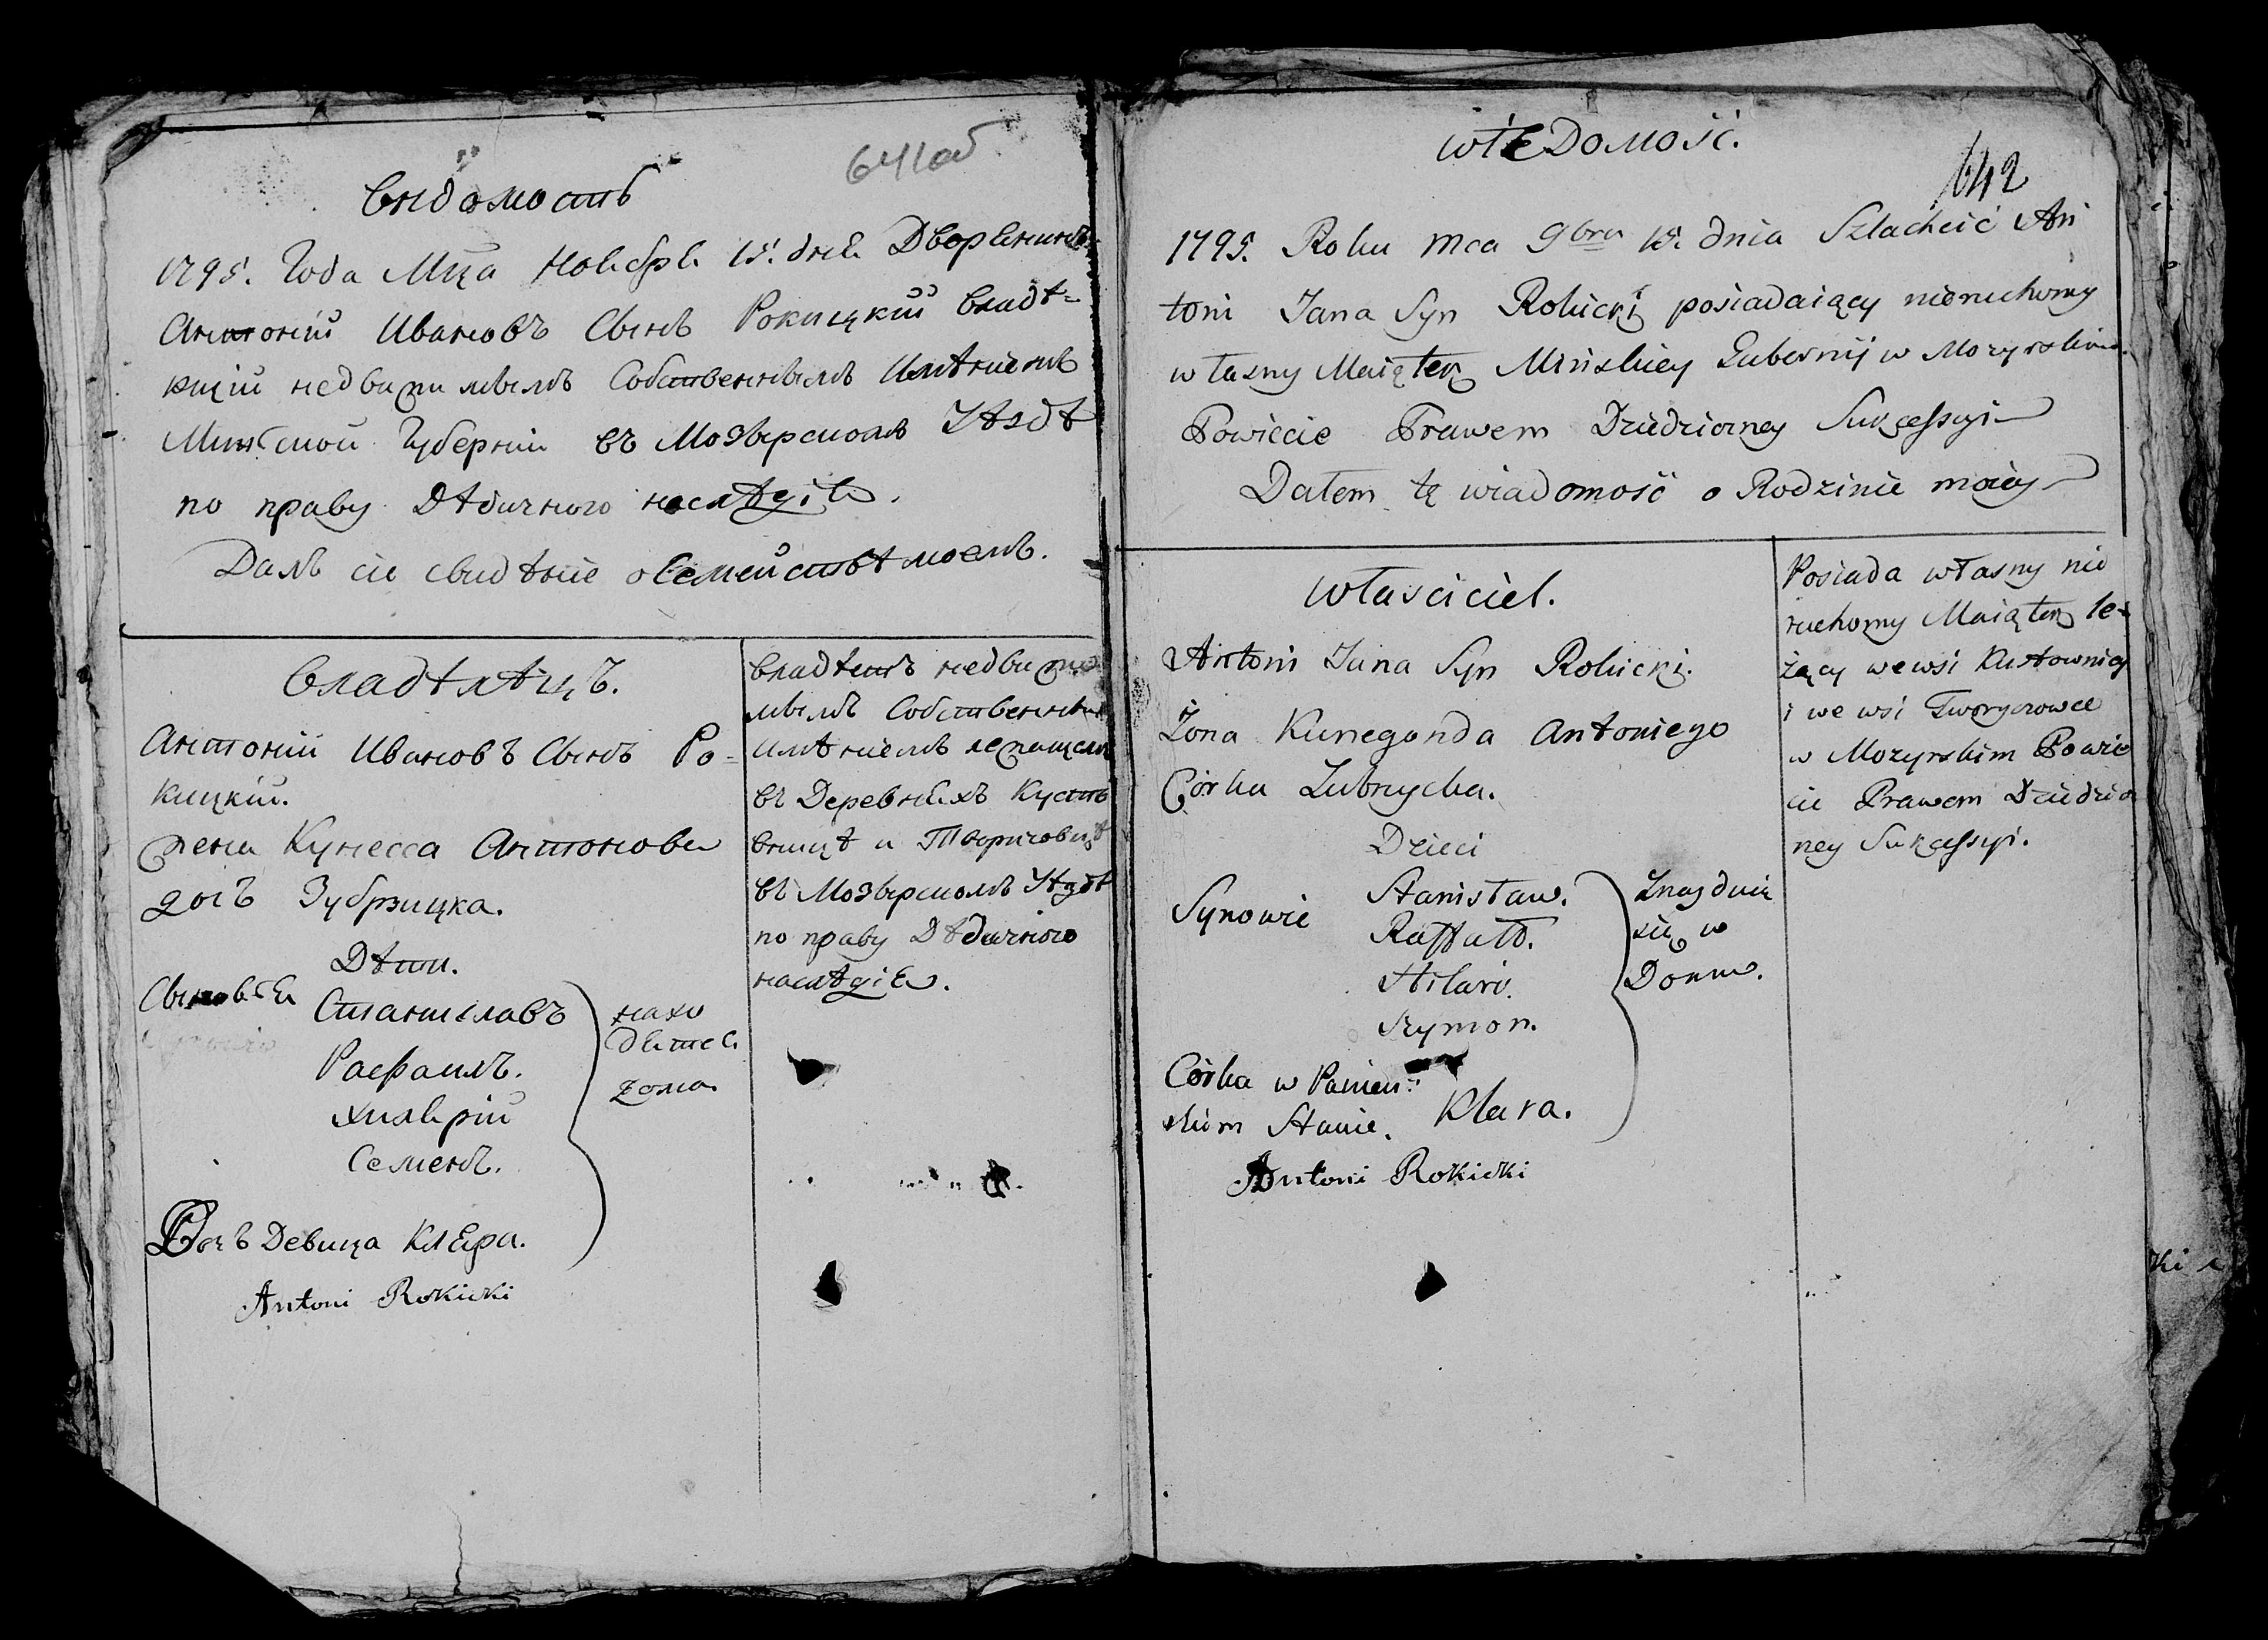 641об
Вѣдомость
1795. Года Мца Ноября 15. дня Дворянинъ
Антоній Ивановъ Сынъ Рокицкій владѣ=
ющій недвижимымъ Собственнымъ Имѣніемъ
Минской Губерніи въ Мозырскомъ Уѣздѣ
по праву Дѣдичного наслѣдія.
Далъ сіе свидѣніе о Семействѣ моемъ.
Владѣлѣцъ.
Антоній Ивановъ Сынъ Ро=
кицкій.
Жена Кунесса Антонова
дочъ Зубрзицка.
Дѣти.
Сыновья
Станиславъ
Рафаилъ.
Хилярій
Семенъ.
нахо
дятся
дома.
Дочъ Девица Кляра.
Antoni Rokicki
владѣетъ недвижи
мымъ Собственнымъ
Имѣніемъ лежащемъ
въ Деревняхъ Кустов
вницѣ и Творичовцѣ
въ Мозырскомъ Уѣздѣ
по праву Дѣдичного
наслѣдія.
wiEDomość.
642
1795. Roku Mca 9bra 15. dnia Szlachcic An
toni Jana Syn Rokicki posiadaiący nieruchomy
własny Maiątek Minskiey Gubernij w Mozyrskim
Powiecie Prawem Dziedziczney Sukcessyi
Dałem tę wiadomość o Rodzinie moiey
właściciel.
Antoni Jana Syn Rokicki.
Żona Kunegonda Antoniego
Córka Zubrzycka.
Dzieci
Synowie
Stanisław.
Raffałł.
Hilari.
Szymon.
Znayduią
się w
Domu.
Córka w Panień:
skim Stanie. Klara.
Antoni Rokicki
Posiada własny nie
ruchomy Maiątek le-
żący we wsi Kustownicy
i we wsi Tworyczowce
w Mozyrskim Powie
cie Prawem Dziedzicz
ney Sukcessyi.
ki